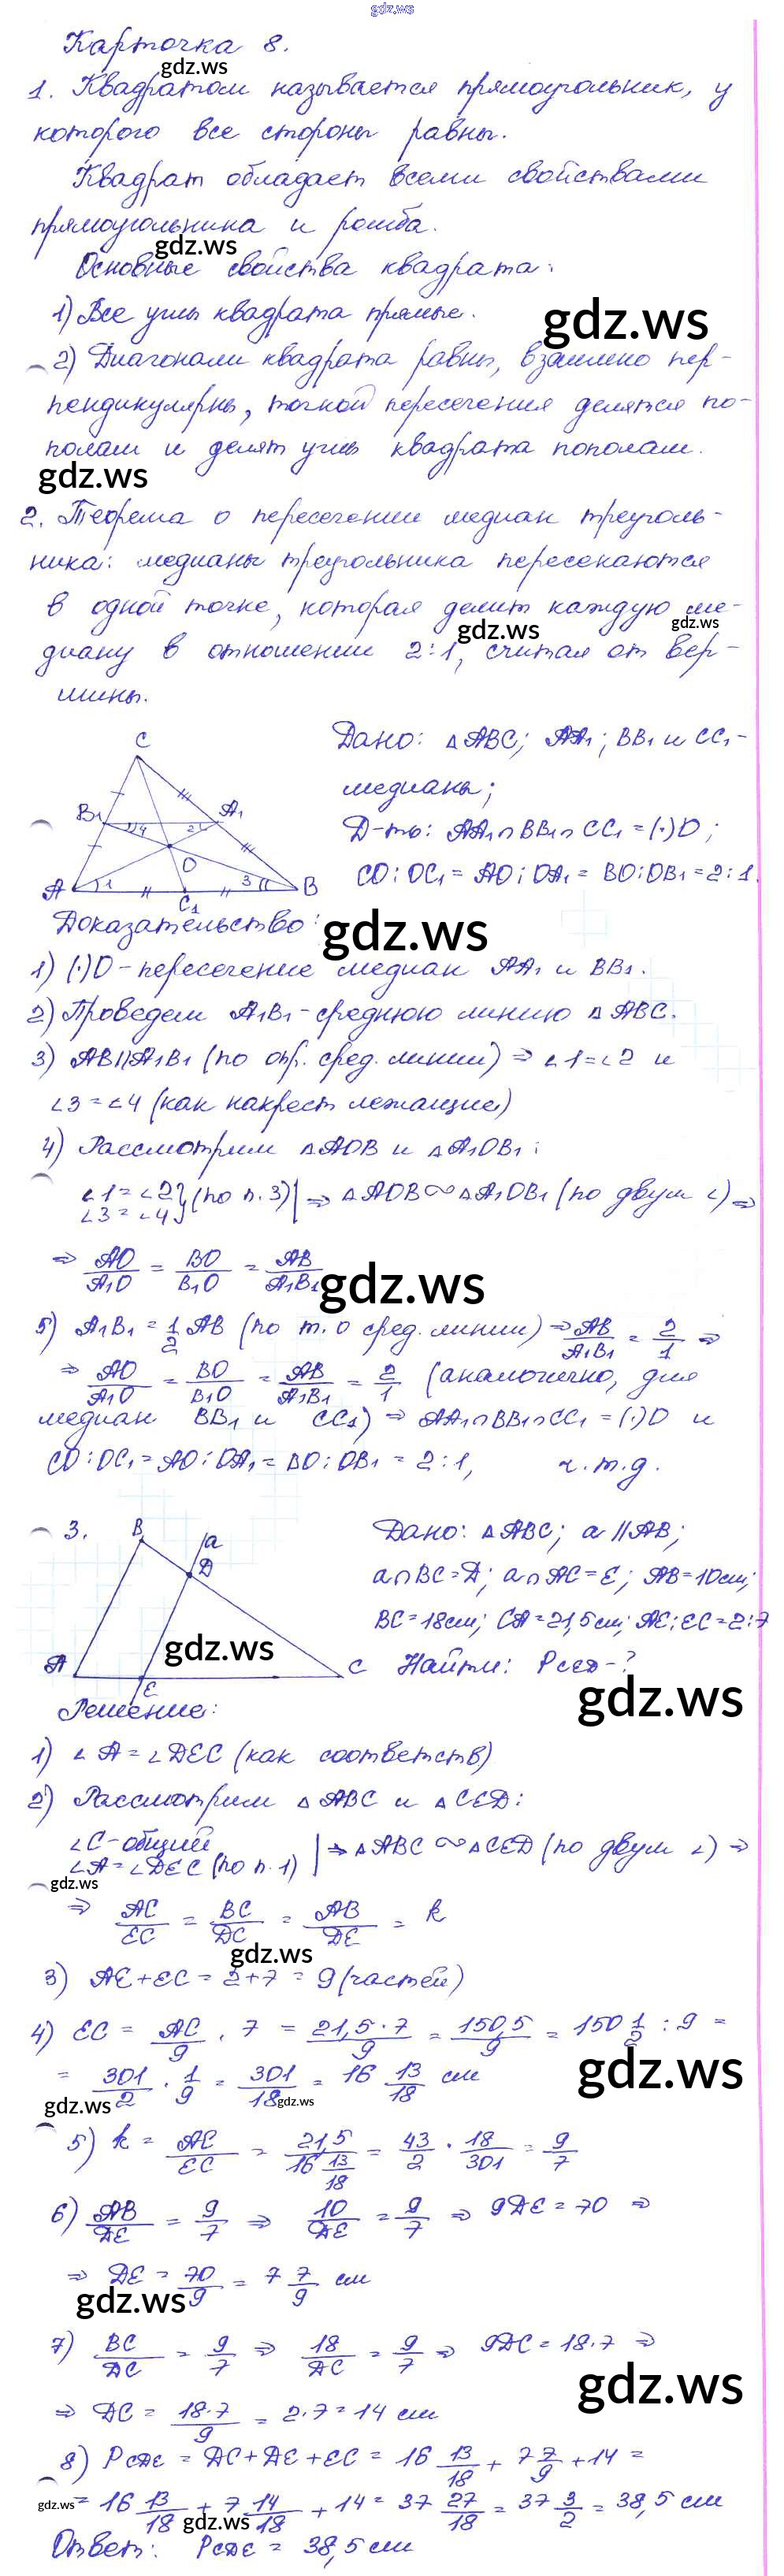 gdz.ws
Карточка 8.
gdz.ws
1. Квадратом называется прямоугольник, у
которого все стороны равны.
Квадрат обладает всеми свойствами
прямоугольника и ромба.
gdz.ws
Основные свойства квадрата:
1) Все углы квадрата прямые.
gdz.ws
2) Диагонали квадрата равны, взаимно пер-
пендикулярны, точкой пересечения делятся по-
полам и делят углы квадрата пополам.
gdz.ws
2. Теорема о пересечении медиан треуголь-
ника: медианы треугольника пересекаются
в одной точке, которая делит каждую ме-
gdz.ws gdz.ws
диану в отношении 2:1, считая от вер-
шины.
C
B₁ A₁
4 2
O
A 1 3 B
C₁
Дано: △ABC; AA₁; BB₁ и CC₁-
медианы;
Д-ть: AA₁∩BB₁∩CC₁=(·)O;
CO:OC₁=AO:OA₁=BO:OB₁=2:1.
Доказательство:
gdz.ws
1) (·)O-пересечение медиан AA₁ и BB₁.
2) Проведем A₁B₁-среднюю линию △ABC.
3) AB||A₁B₁ (по опр. сред. линии) ⇒ ∠1=∠2 и
∠3=∠4 (как накрест лежащие)
4) Рассмотрим △AOB и △A₁OB₁:
∠1=∠2
∠3=∠4} (по п. 3)| ⇒ △AOB∾△A₁OB₁ (по двум ∠) ⇒
⇒ AO/A₁O = BO/B₁O = AB/A₁B₁
gdz.ws
5) A₁B₁ = 1/2 AB (по т. о сред. линии) ⇒ AB/A₁B₁ = 2/1 ⇒
⇒ AO/A₁O = BO/B₁O = AB/A₁B₁ = 2/1 (аналогично, для
медиан BB₁ и CC₁) ⇒ AA₁∩BB₁∩CC₁=(·)O и
CO:OC₁=AO:OA₁=BO:OB₁=2:1, ч.т.д.
3.
B a
D
A E C
gdz.ws
Дано: △ABC; a||AB;
a∩BC=D; a∩AC=E; AB=10см;
BC=18см; CA=21,5см; AE:EC=2:7
Найти: PCED-?
gdz.ws
Решение:
1) ∠A=∠DEC (как соответств)
2) Рассмотрим △ABC и △CED:
∠C-общий
∠A=∠DEC (по п. 1) | ⇒ △ABC∾△CED (по двум ∠) ⇒
gdz.ws
⇒ AC/EC = BC/DC = AB/DE = k
gdz.ws
3) AE+EC=2+7=9(частей)
4) EC = AC/9 · 7 = 21,5·7/9 = 150,5/9 = 150 1/2 : 9 =
= 301/2 · 1/9 = 301/18 = 16 13/18 см
gdz.ws
gdz.ws gdz.ws
5) k = AC/EC = 21,5/16 13/18 = 43/2 · 18/301 = 9/7
6) AB/DE = 9/7 ⇒ 10/DE = 9/7 ⇒ 9DE=70 ⇒
⇒ DE = 70/9 = 7 7/9 см
gdz.ws
7) BC/DC = 9/7 ⇒ 18/DC = 9/7 ⇒ 9DC=18·7 ⇒
gdz.ws
⇒ DC = 18·7/9 = 2·7=14 см
8) PCDE = DC+DE+EC = 16 13/18 + 7 7/9 + 14 =
gdz.ws
= 16 13/18 + 7 14/18 + 14 = 37 27/18 = 37 3/2 = 38,5 см
gdz.ws
Ответ: PCDE = 38,5 см